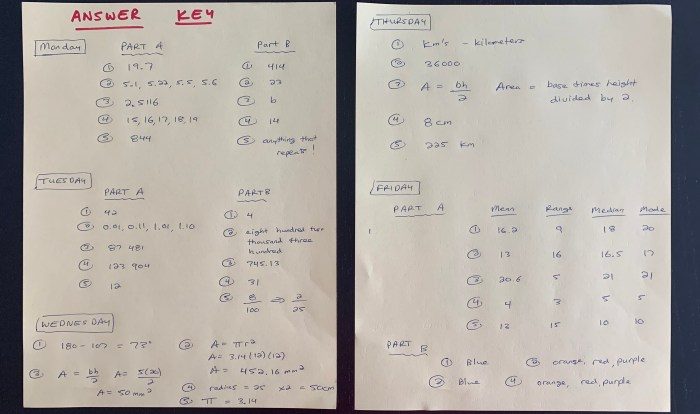 ANSWER KEY
Monday
PART A
① 19.7
② 5.1, 5.22, 5.5, 5.6
③ 2.5116
④ 15, 16, 17, 18, 19
⑤ 844
Part B
① 414
② 23
③ b
④ 14
⑤ anything that
repeats!
TUESDAY
PART A
① 42
② 0.01, 0.11, 1.01, 1.10
③ 87 481
④ 123 904
⑤ 12
PART B
① 4
② eight hundred two
thousand three
hundred
③ 745.13
④ 31
⑤ 8/100 ⇒ 2/25
WEDNESDAY
① 180 - 107 = 73°
② A = πr²
A = 3.14(12)(12)
A = 452.16 mm²
③ A = bh/2 A = 5(20)/2
A = 50 mm²
④ radius = 25 x2 = 50cm
⑤ π = 3.14
THURSDAY
① Km's - kilometers
② 36000
③ A = bh/2 Area = base times height
divided by 2.
④ 8cm
⑤ 225 km
FRIDAY
PART A
Mean Range Median Mode
① 16.2 9 18 20
② 13 16 16.5 17
③ 20.6 5 21 21
④ 4 3 5 5
⑤ 12 15 10 10
PART B
① Blue ③ orange, red, purple
② Blue ④ orange, red, purple